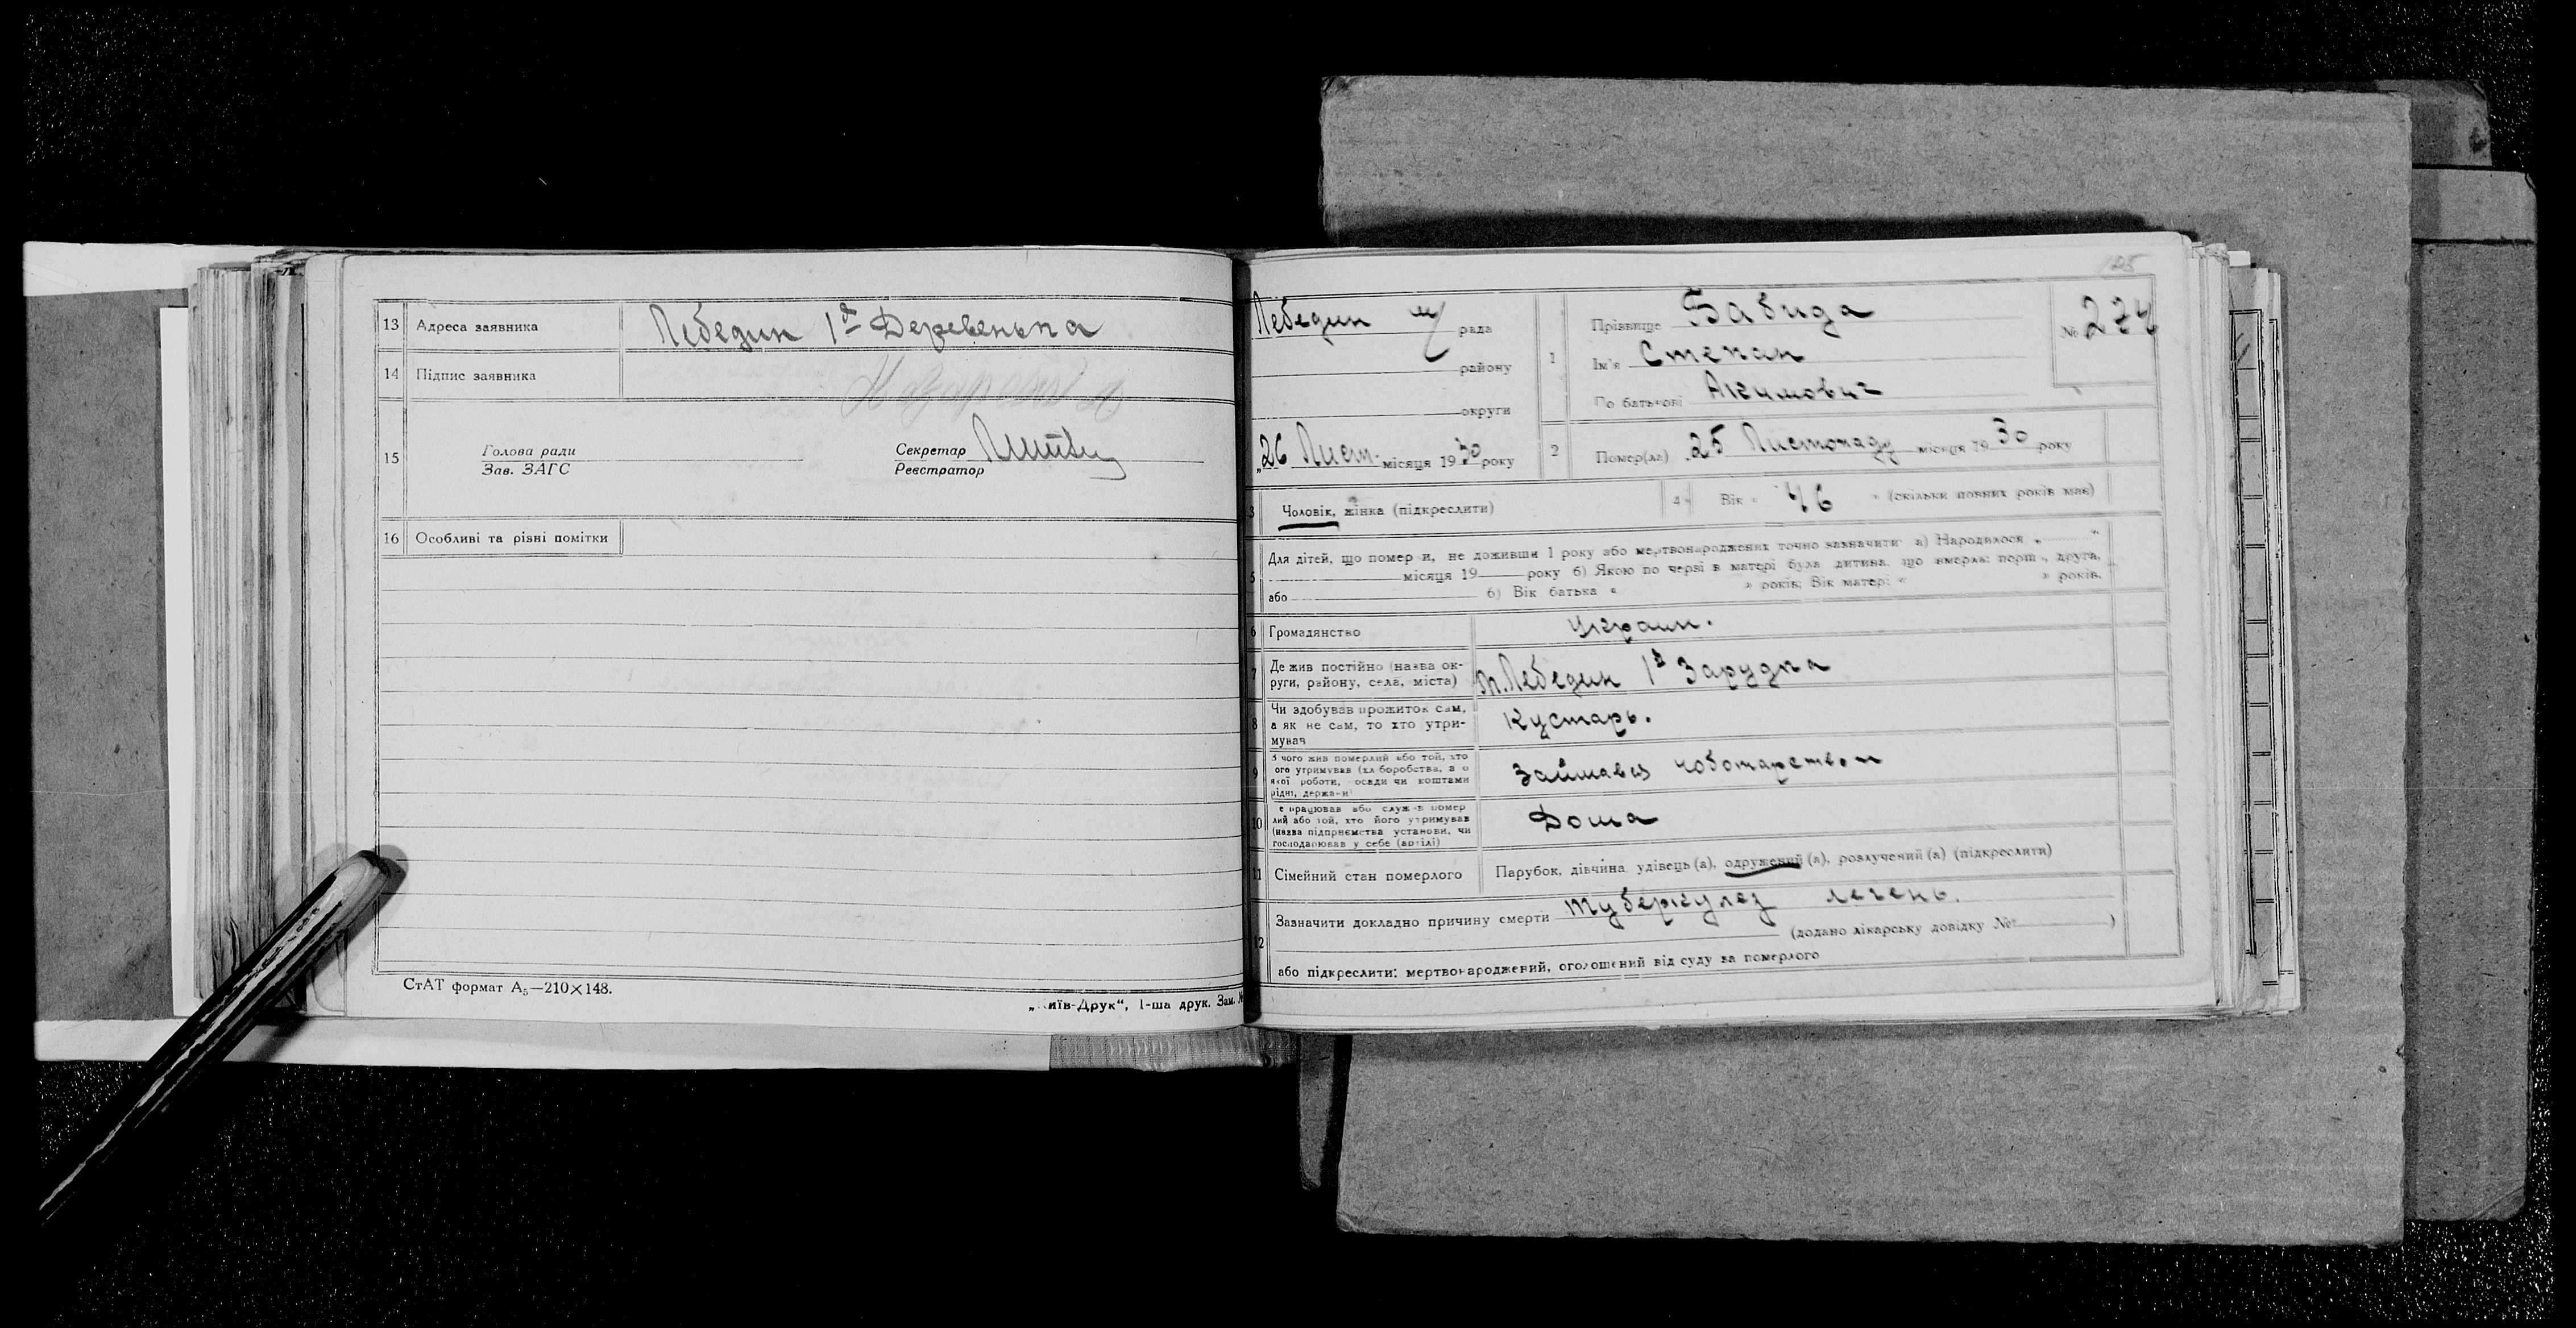 13 Адреса заявника Лебедин 1а Деревенька
14 Підпис заявника
15 Голова ради
Зав. ЗАГС
Секретар
Реєстратор
16 Особливі та різні помітки
СтАТ формат А5—210×148.
иїв-Друк“, 1-ша друк. Зам. №
125
Лебедин м/ рада
району
округи
„26 Лист. місяця 1930 року
1 Прізвище Бабида
Ім'я Степан
По батькові Акимович
№ 274
2 Помер(ла) „25 Листопаду місяця 1930 року
3 Чоловік, жінка (підкреслити)
4 Вік „ 46 “ (скільки повних років має)
5 Для дітей, що помер и, не доживши 1 року або мертвонароджених точно зазначити: а) Народилося „ “
місяця 19 року б) Якою по черзі в матері була дитина, що вмерла: перш , друга,
або б) Вік батька “ „ років; Вік матері “ „ років.
6 Громадянство Украин.
7 Де жив постійно (назва ок-
руги, району, села, міста) м. Лебедин 1а Зарудка
8 Чи здобував прожиток сам,
а як не сам, то хто утри-
мував Кустарь.
9 З чого жив померлий або той, хто
ого утримував (хл боробства, з о
якої роботи, посади чи коштами
рідні, держави) Займався чоботарством
10 е працював або служ в помер
лий або той, хто його утримував
(назва підприємства установи, чи
господарював у себе (артілі) Дома
11 Сімейний стан померлого Парубок, дівчина удівець (а), одружений (а), розлучений (а) (підкреслити)
12 Зазначити докладно причину смерти туберкулез легень.
(додано лікарську довідку № )
або підкреслити: мертвонароджений, оголошений від суду за померлого